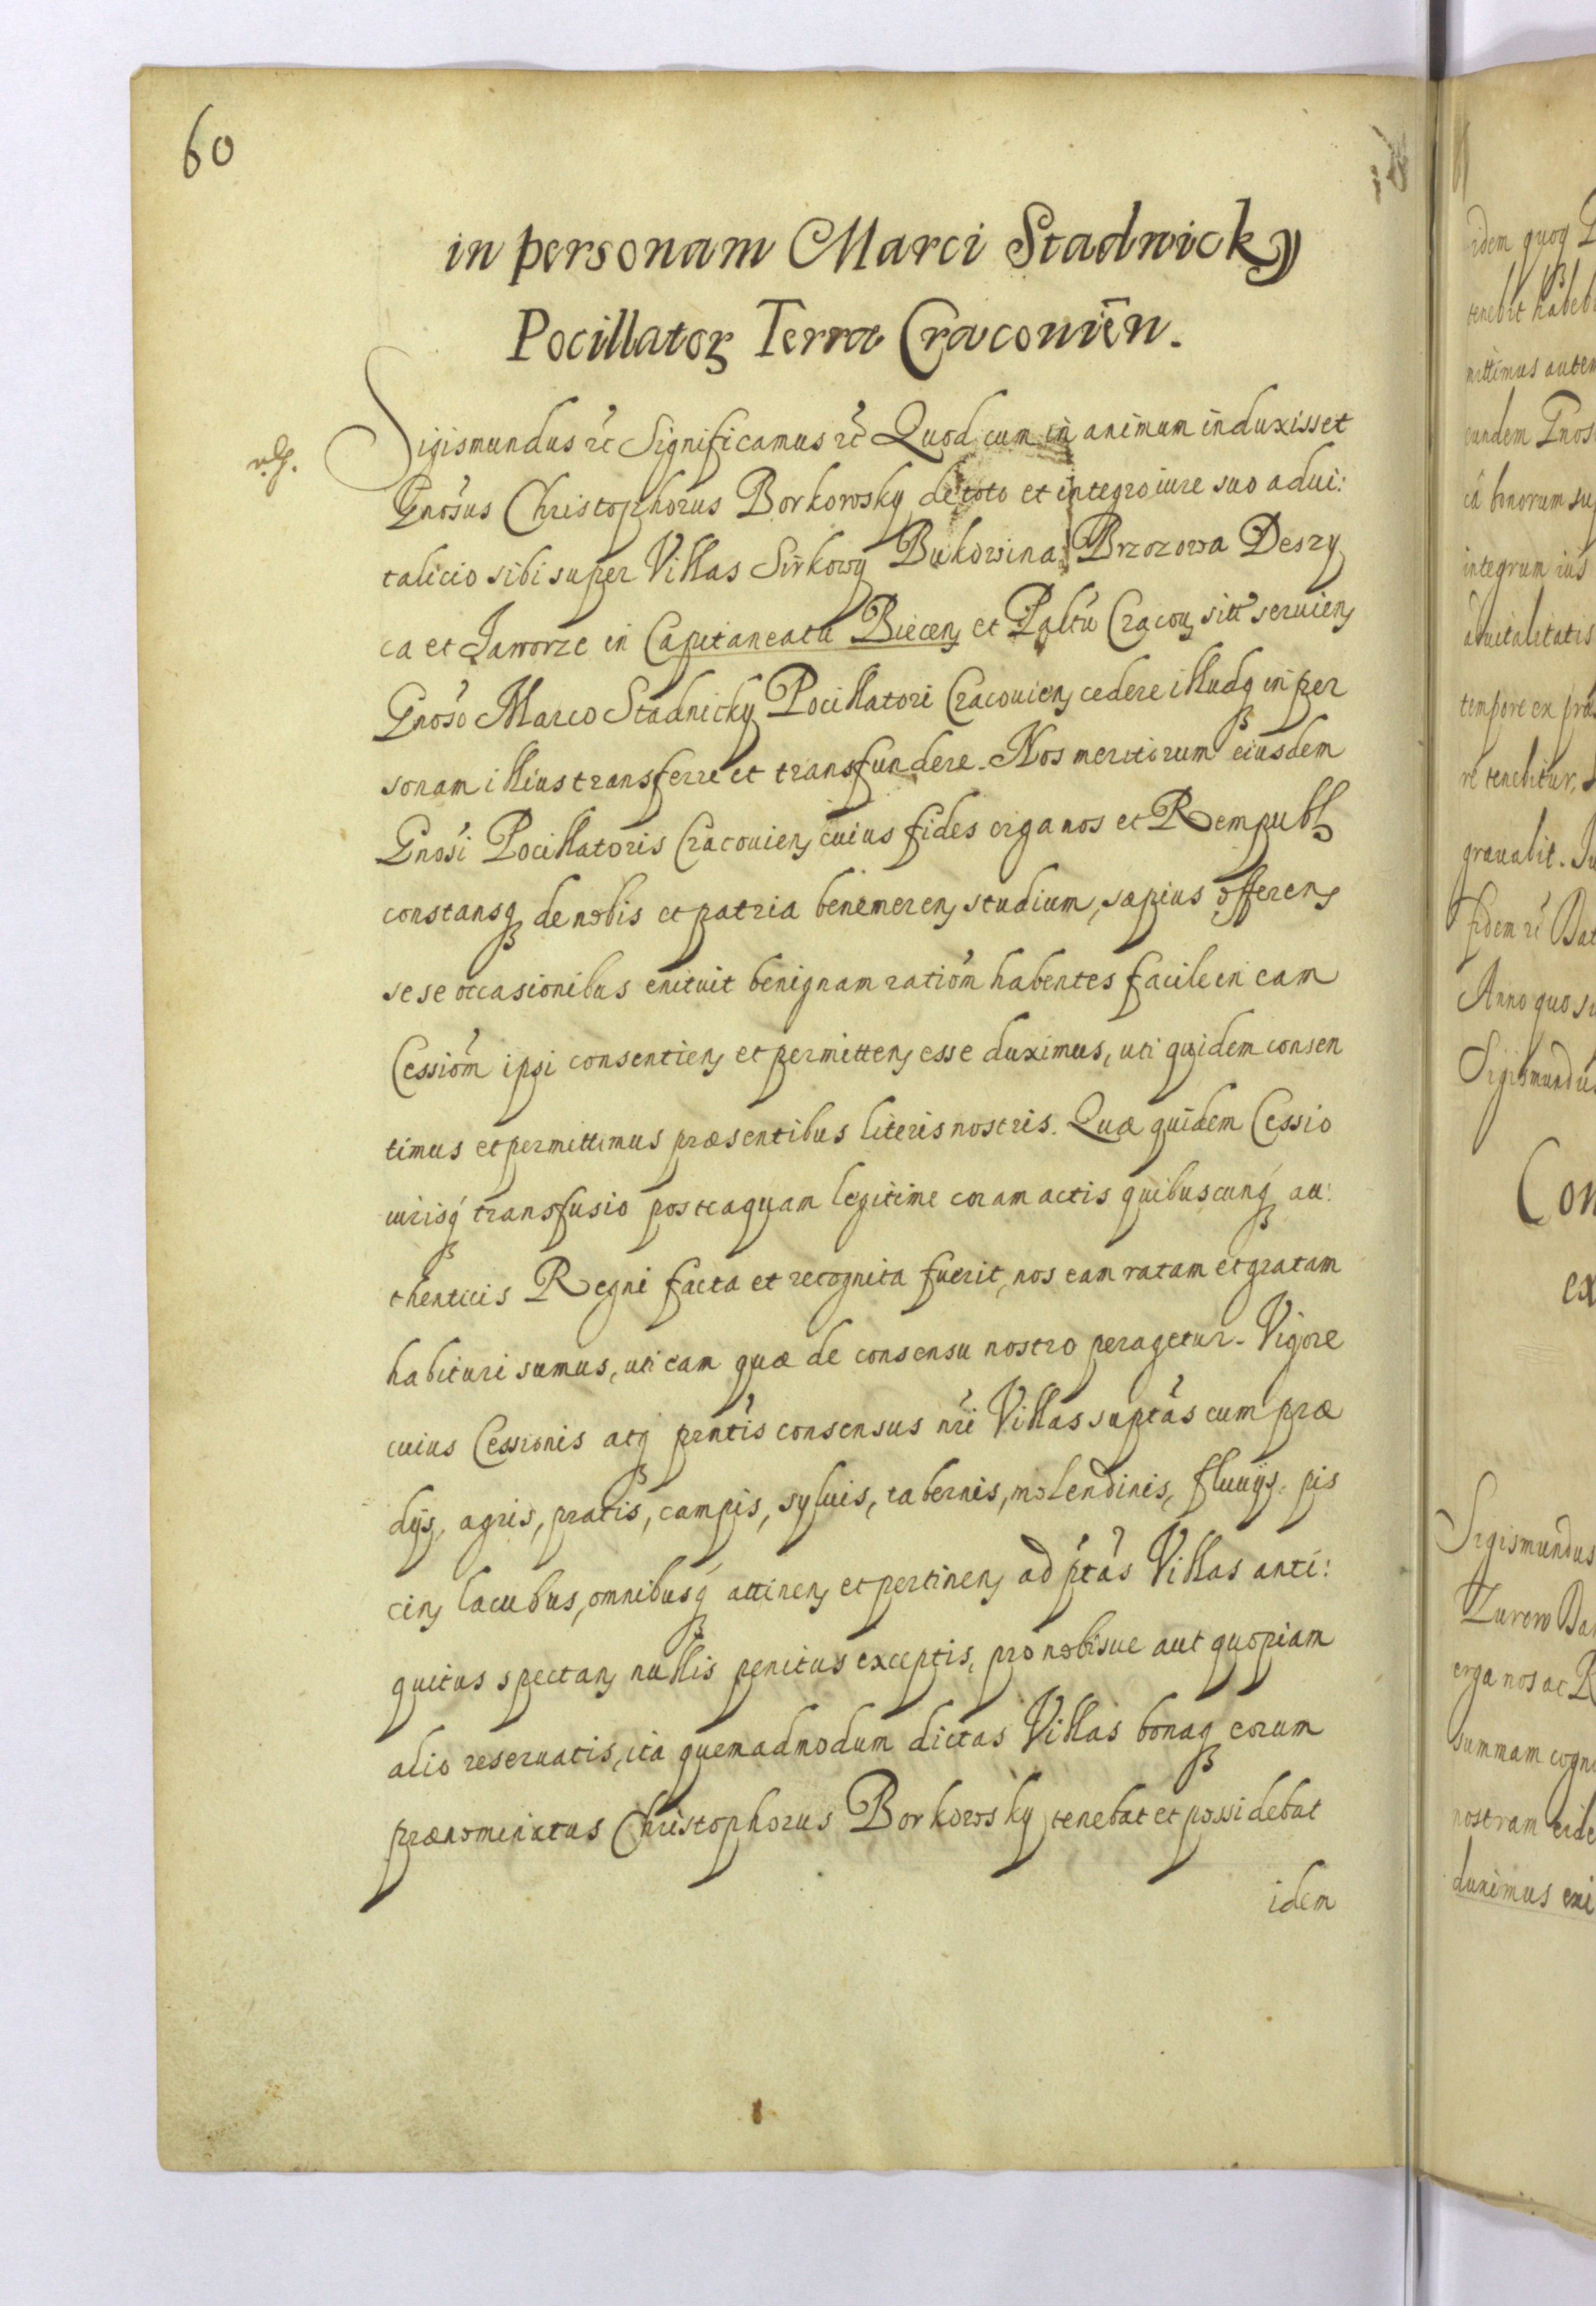 60
in personam Marci Stadnicky
Pocillator Terræ Cracouien.
Sigismundus etc Significamus etc Quod cum in animum induxisset
Gnosus Christophorus Borkowsky de toto et integro iure suo adui:
talicio sibi super Villas Sirkowy Bukowina Brzozowa Deszy
ca et Jaworze in Capitaneatu Biecen et Paltu Cracou sitt seruien
Gnoso Marco Stadnicky Pocillatori Cracouien cedere illudq in per
sonam illius transferre et transfundere. Nos meritorum eiusdem
Gnosi Pocillatoris Cracouien cuius fides erga nos et Rempubl
constansq de nobis et patria benemeren studium, sæpius offeren
sese occasionibus enituit benignam rationm habentes facile in eam
Cessionm ipsi consentien et permitten esse duximus, uti quidem consen
timus et permittimus præsentibus literis nostris. Quæ quidem Cessio
iurisq transfusio posteaquam legitime coram actis quibuscunq au:
thenticis Regni facta et recognita fuerit, nos eam ratam et gratam
habituri sumus, uti eam quæ de consensu nostro peragetur. Vigore
cuius Cessionis atq pntis consensus nri Villas suptas cum præ
dijs, agris, pratis, campis, syluis, tabernis, molendinis, fluuijs, pis
cin lacubus, omnibusq attinen et pertinen ad ptas Villas anti:
quitus spectan nullis penitus exceptis, pro nobisue aut quopiam
alio reseruatis, ita quemadmodum dictas Villas bonaq eorum
prænominatus Christophorus Borkowsky tenebat et possidebat
idem